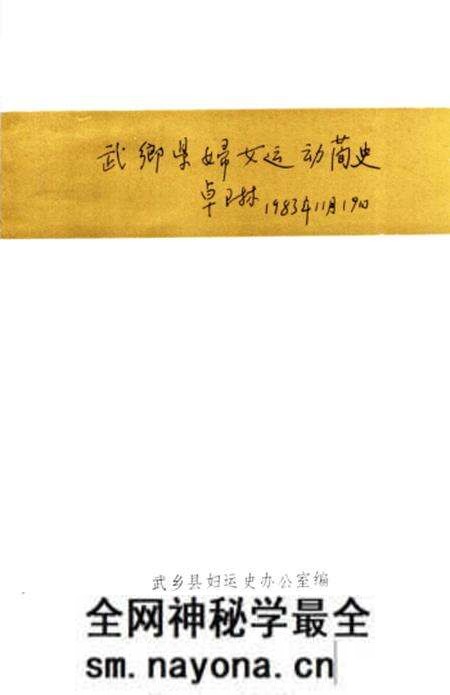 武鄉県婦女运动简史
卓卫林 1983年11月19日
武乡县妇运史办公室编
全网神秘学最全
sm.nayona.cn